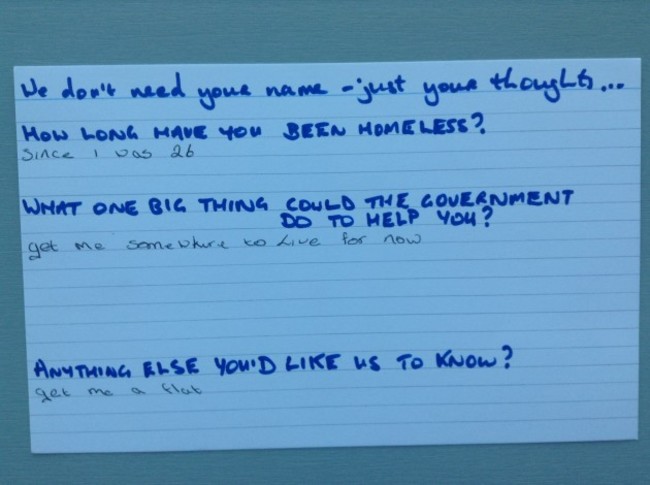 We don't need your name - just your thoughts...
HOW LONG HAVE YOU BEEN HOMELESS?
Since I was 26
WHAT ONE BIG THING COULD THE GOVERNMENT
DO TO HELP YOU?
get me somewhere to Live for now
ANYTHING ELSE YOU'D LIKE US TO KNOW?
get me a flat